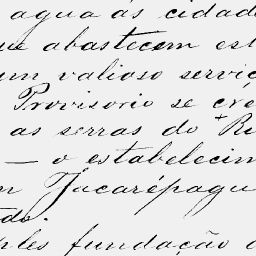 agua ás cidad
ue abastecem est
um valioso servi
Provisorio se cre
as serras do Ri
— o estabelecim
m Jacarépagu
ndo.
ples fundação